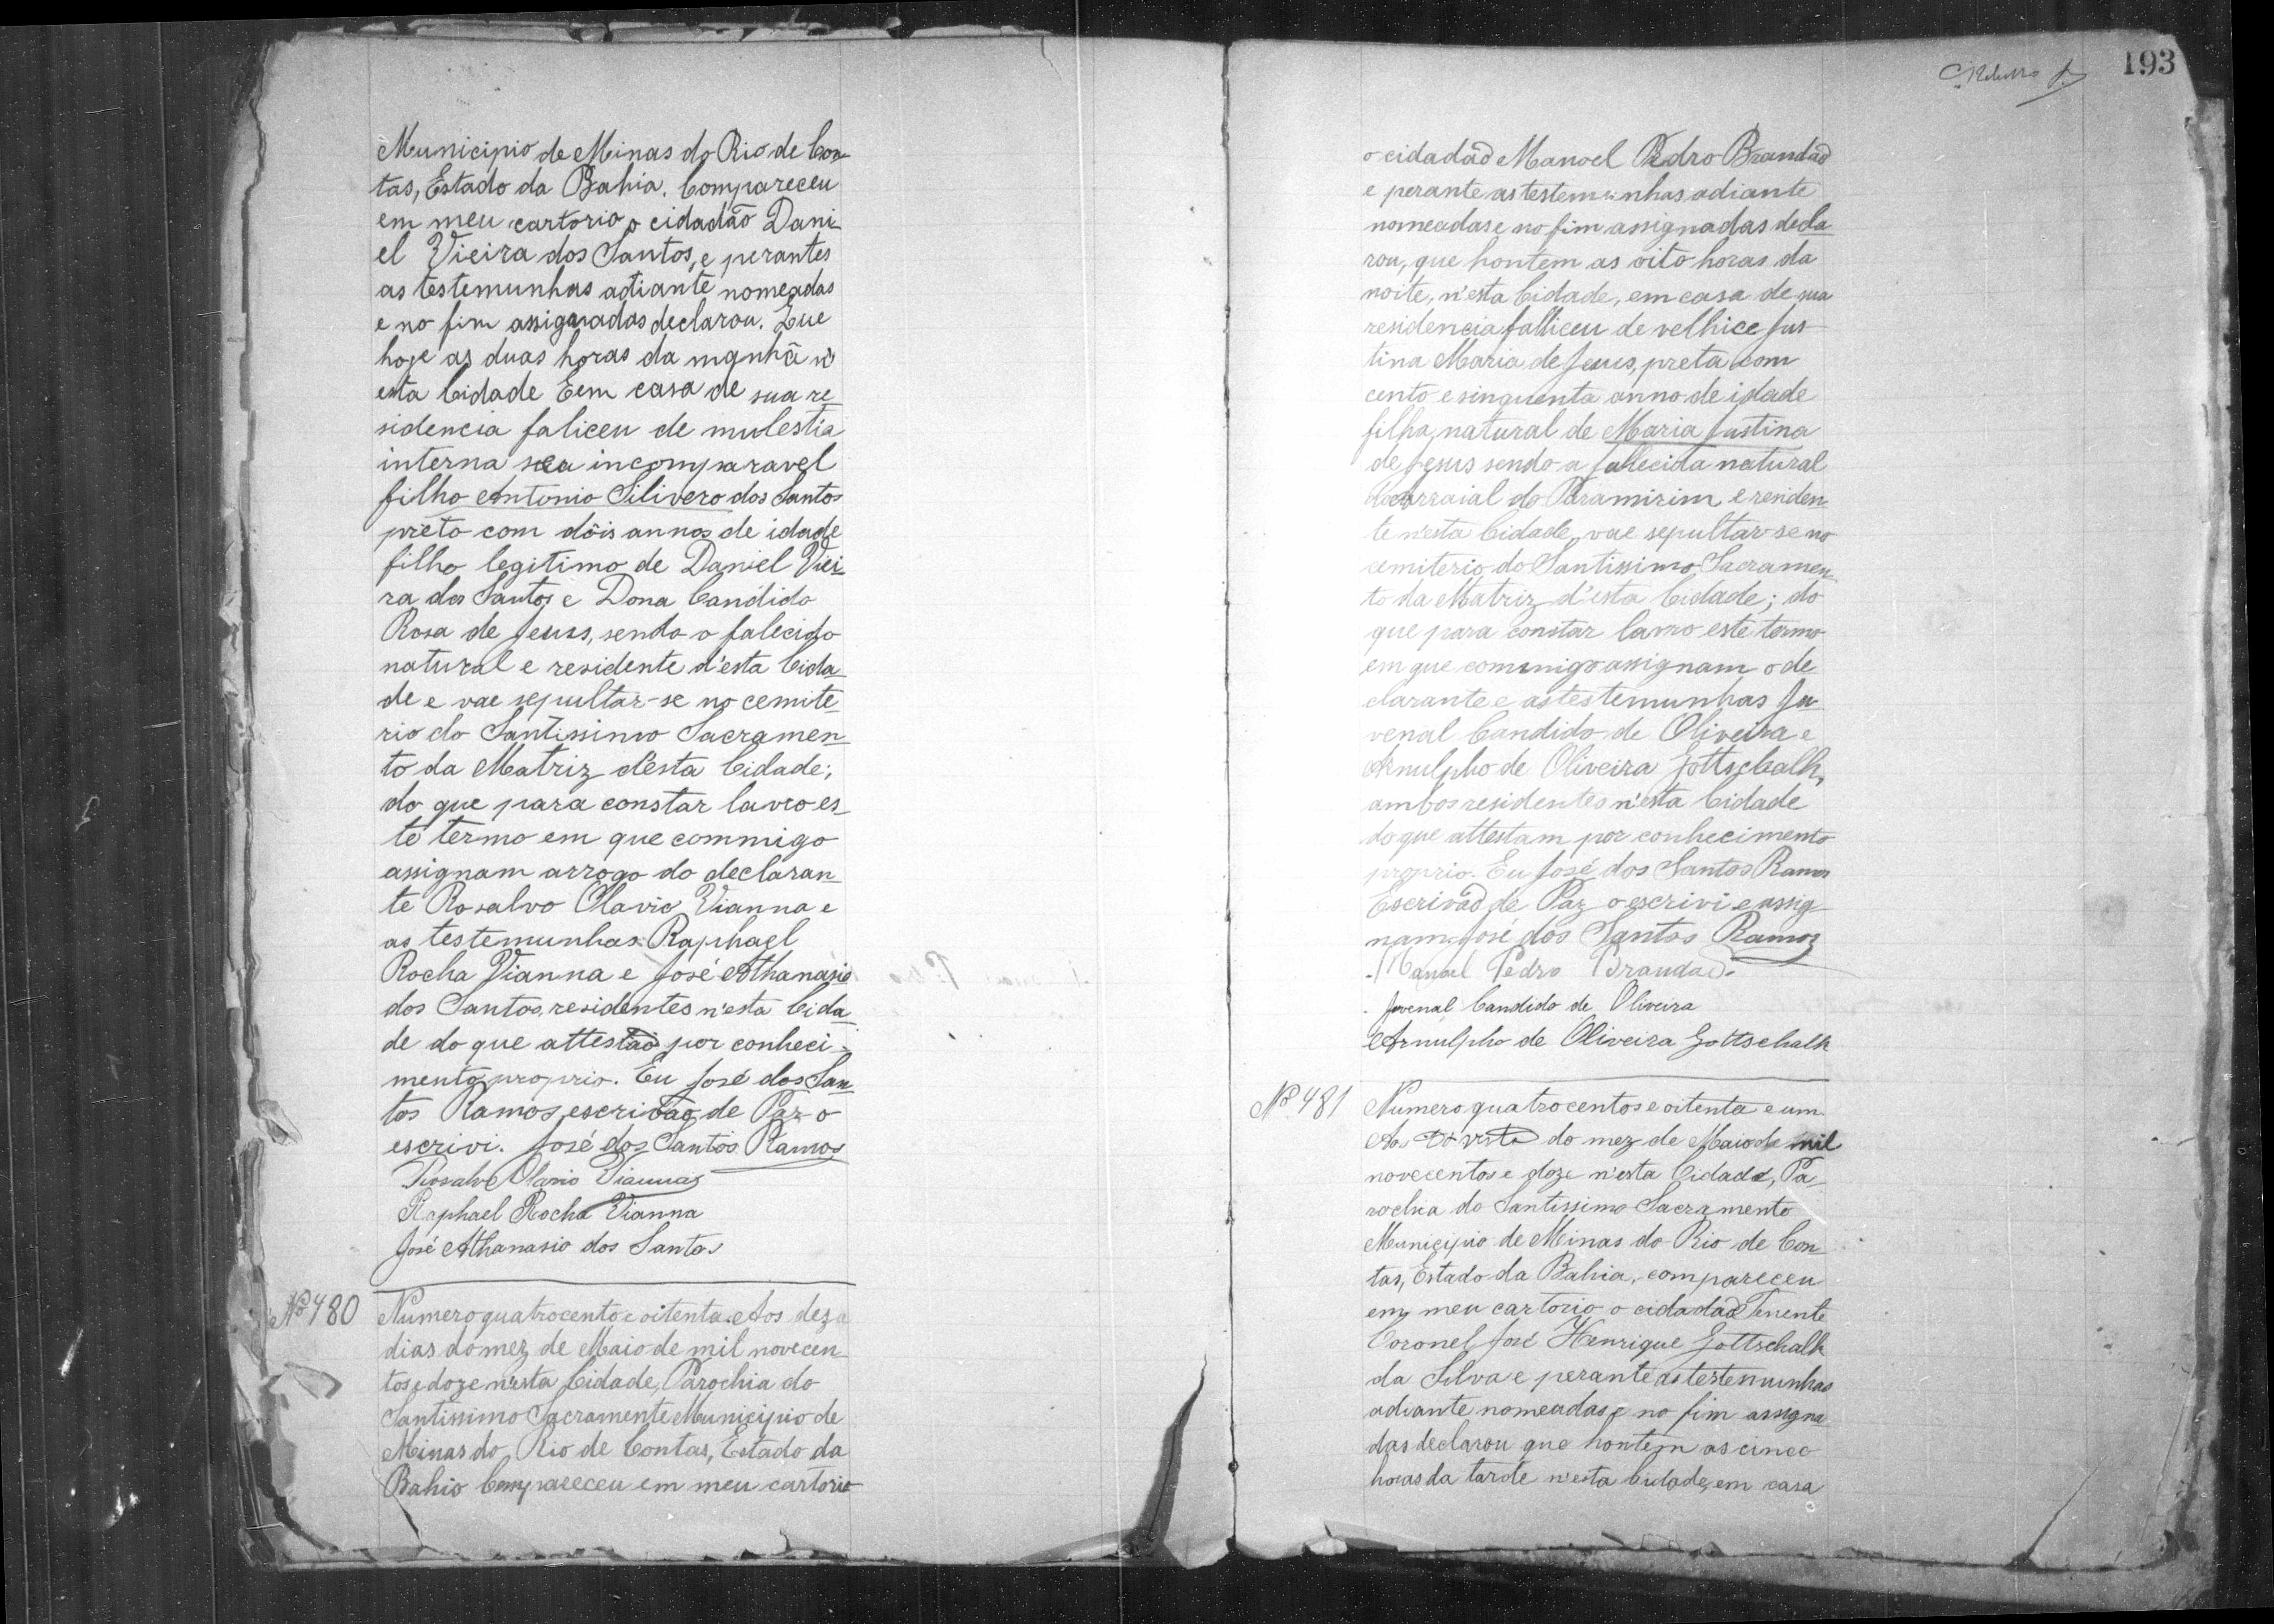 Municipio de Minas do Rio de Con-
tas, Estado da Bahia. Compareceu
em meu cartorio o cidadão Dani-
el Vieira dos Santos, e perantes
as testemunhas adiante nomeadas
e no fim assignadas declarou. Que
hoje as duas horas da manhã n'
esta Cidade Eem casa de sua re-
sidencia faliceu de mulestia
interna seu incomparavel
filho Antonio Silivero dos Santos
preto com dôis annos de idade
filho legitimo de Daniel Viei-
ra dos Santos e Dona Candido
Rosa de Jesus, sendo o falecido
natural e residente d'esta Cida-
de e vae sepultar-se no cemite-
rio do Santissimo Sacramen-
to da Matriz d'esta Cidade;
do que para constar lavro es-
te termo em que commigo
assignam arrogo do declaran-
te Rosalvo Olavio Vianna e
as testemunhas Raphael
Rocha Vianna e José Athanasio
dos Santos, residentes n'esta Cida-
de do que attestão por conheci-
mento proprio. Eu José dos San-
tos Ramos, escrivão de Paz o
escrivi. José dos Santos Ramos
Rosalvo Olavio Vianna
Raphael Rocha Vianna
José Athanasio dos Santos
Nº 480
Numero quatrocento e oitenta. Aos deza
dias do mez de Maio de mil novecen-
tos e doze n'esta Cidade, Parochia do
Santissimo Sacramente Municipio de
Minas do Rio de Contas, Estado da
Bahio Compareceu em meu cartorio
193
o cidadão Manoel Pedro Brandão
e perante as testemunhas adiante
nomeadas e no fim assignadas decla-
rou, que hontem as oito horas da
noite, n'esta Cidade, em casa de sua
residencia falliceu de velhice Jus-
tina Maria de Jesus, preta com
cento e sinquenta anno de idade
filha natural de Maria Justina
de Jesus sendo a fallecida natural
do arraial do Paramirim e residen-
te n'esta Cidade, vae sepultar-se no
cemiterio do Santissimo Sacramen-
to da Matriz d'esta Cidade; do
que para constar lavro este termo
em que commigo assignam o de-
clarante e as testemunhas Ju-
venal Candido de Oliveira e
Arnulpho de Oliveira Gottschalk,
ambos residentes n'esta Cidade
do que attestam por conhecimento
proprio. Eu José dos Santos Ramos
Escrivão de Paz o escrivi e assig-
nam José dos Santos Ramos
Manoel Pedro Brandão
Juvenal Candido de Oliveira
Arnulpho de Oliveira Gottschalk
Nº 481
Numero quatrocentos e oitenta e um.
Aos do mez de Maio de mil
novecentos e doze n'esta Cidade, Pa-
rochia do Santissimo Sacramento
Municipio de Minas do Rio de Con-
tas, Estado da Bahia, compareceu
em meu cartorio o cidadão Tenente
Coronel José Henrique Gottschalk
da Silva e perante as testemunhas
adiante nomeadas e no fim assigna-
das declarou que hontem as cinco
horas da tarde n'esta Cidade, em casa